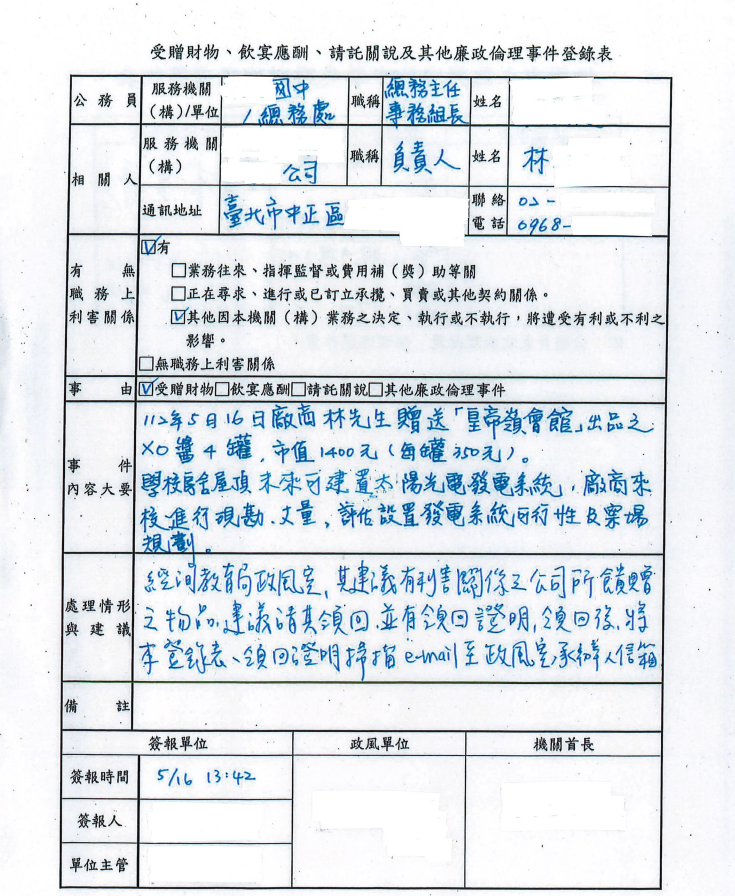 受贈財物、飲宴應酬、請託關說及其他廉政倫理事件登錄表
公務員 服務機關（構）/單位 國中/總務處 職稱 總務主任 事務組長 姓名
相關人 服務機關（構） 公司 職稱 負責人 姓名 林
通訊地址 臺北市中正區 聯絡電話 02- 0968-
有無職務上利害關係
☑有
□業務往來、指揮監督或費用補（獎）助等關
□正在尋求、進行或已訂立承攬、買賣或其他契約關係。
☑其他因本機關（構）業務之決定、執行或不執行，將遭受有利或不利之
影響。
□無職務上利害關係
事由 ☑受贈財物□飲宴應酬□請託關說□其他廉政倫理事件
事件內容大要
112年5月16日廠商林先生贈送「皇帝嶺會館」出品之
XO醬4罐，市值1400元（每罐350元）。
學校房舍屋頂未來可建置太陽光電發電系統，廠商來
校進行現勘、丈量，評估設置發電系統可行性及案場
規劃。
處理情形與建議
經洵教育局政風室，其建議有利害關係之公司所餽贈
之物品，建議請其領回，並有領回證明，領回後，將
本登錄表、領回證明掃描e-mail至政風室承辦人信箱
備註
簽報單位 政風單位 機關首長
簽報時間 5/16 13:42
簽報人
單位主管